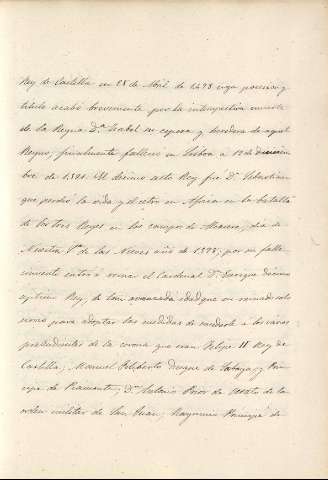 Rey de Castilla en 28 de Abril de 1498 cuya posesion y
titulo acabó brevemente por la intempestiva muerte
de la Reyna D.ª Isabel su esposa y heredera de aquel
Reyno; finalmente falleció en Lisboa a 12 de diciem
bre de 1521. El decimo sesto Rey fue D.n Sebastian
que perdió la vida y el cetro en Africa en la batalla
de los tres Reyes en los campos de Alcazar, dia de
Nuestra S.ª de las Nieves año de 1578; por su falle
cimiento entró a reinar el Cardinal D.n Enrique décimo
septimo Rey, de tan avanzada edad que su reinado solo
sirvió para adoptar las medidas de los varios
pretendientes de la corona que eran Felipe II Rey de
Castilla; Manuel Filiberto Duque de Saboya, y Prin
cipe de Piamonte; D.n Antonio Prior de Ocrato de la
orden militar de San Juan; Raynucio Principe de